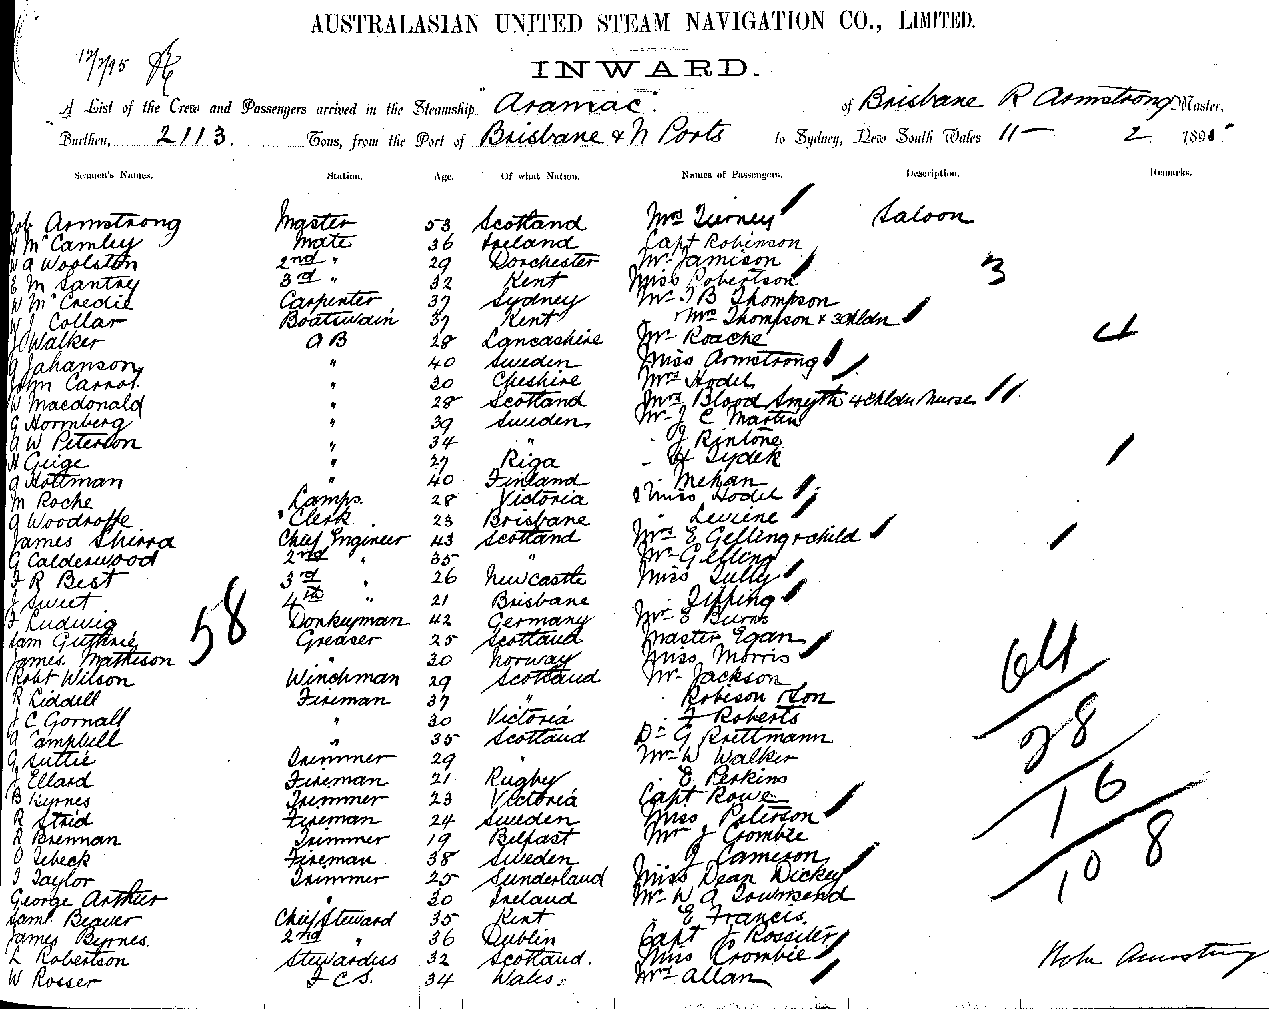 AUSTRALASIAN UNITED STEAM NAVIGATION CO., LIMITED.
12/2/95
INWARD.
A List of the Crew and Passengers arrived in the Steamship Aramac. of Brisbane R Armstrong Master,
Burthen, 2113. Tons, from the Port of Brisbane & N Ports to Sydney, New South Wales 11 - 2 1895
Seamen's Names. Station. Age. Of what Nation. Names of Passengers. Description. Remarks.
Rob Armstrong Master 53 Scotland Mrs Tierney Saloon
McCamley Mate 36 Ireland Capt Robinson
W A Woolston 2nd " 29 Dorchester Mr Jamison
E M Santry 3rd " 32 Kent Miss Robertson 3
W McCredie Carpenter 37 Sydney Mr J B Thompson
W J Collar Boatswain 37 Kent " Mrs Thompson & 3 chldn
J Walker AB 28 Lancashire Mr Roache 4
Johanson " 40 Sweden Miss Armstrong
John Carrol " 30 Cheshire Mrs Hodel
W Macdonald " 28 Scotland Mrs Blood Smyth 4 chldn Nurse
G Hormberg " 39 Sweden Mr J C Martin
A W Peterson " 34 " " J Rintone
H Geige " 27 Riga "
Hoffman " 40 Finland " Mehan
M Roche Lamps 28 Victoria 2 Miss Hodel
G Woodroffe Clerk 23 Brisbane " Levine
James Shirra Chief Engineer 43 Scotland Mrs E Gelling & child
G Calderwood 2nd " 35 " Mr Gelling
J R Best 3rd " 26 Newcastle Miss Tully
J Sweet 4th " 21 Brisbane " Tipping
F Ludwig Donkeyman 42 Germany Mr E Burns
58
Sam Guthrie Greaser 25 Scotland Master Egan
James Mathison " 30 Norway Miss Morris
Robt Wilson Winchman 29 Scotland Mr Jackson 64
R Liddell Fireman 37 " " Robison & Son
J C Gornall " 30 Victoria " J Roberts
A Campbell " 35 Scotland Dr G Brettmann 28
G Suttie Trimmer 29 " Mr W Walker
J Ellard Fireman 21 Rugby " E Perkins
B Byrnes Trimmer 23 Victoria Capt Rowe 16
R Strid Fireman 24 Sweden Miss Peterson
R Brennan Trimmer 19 Belfast Mr J Crombie
O Tebeck Fireman 38 Sweden " J Jameson 108
J Taylor Trimmer 25 Sunderland Miss Dean Dickey
George Arthur " 30 Ireland Mr W A Townsend
Saml Beaver Chief Steward 35 Kent " E Francis
James Byrnes. 2nd " 36 Dublin Capt J Rossiter
L Robertson Stewardess 32 Scotland. Miss Crombie Robr Armstrong
W Rosser F C S. 34 Wales. Mrs Allan